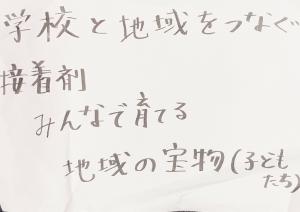 学校と地域をつなぐ
接着剤
みんなで育てる
地域の宝物(子ども
たち)